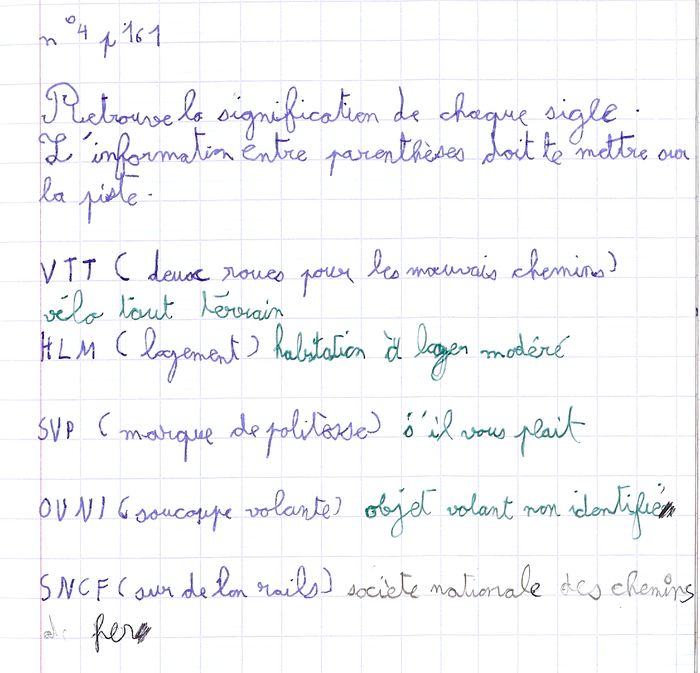 n° 4 p 161
Retrouve la signification de chaque sigle.
L'information entre parenthèses doit te mettre sur
la piste.
VTT ( deux roues pour les mauvais chemins)
vélo tout terrain
HLM ( logement) habitation à loyer modéré
SVP ( marque de politesse) s'il vous plait
OVNI ( soucoupe volante) objet volant non identifié
SNCF ( sur de bon rails) société nationale des chemins
de fer